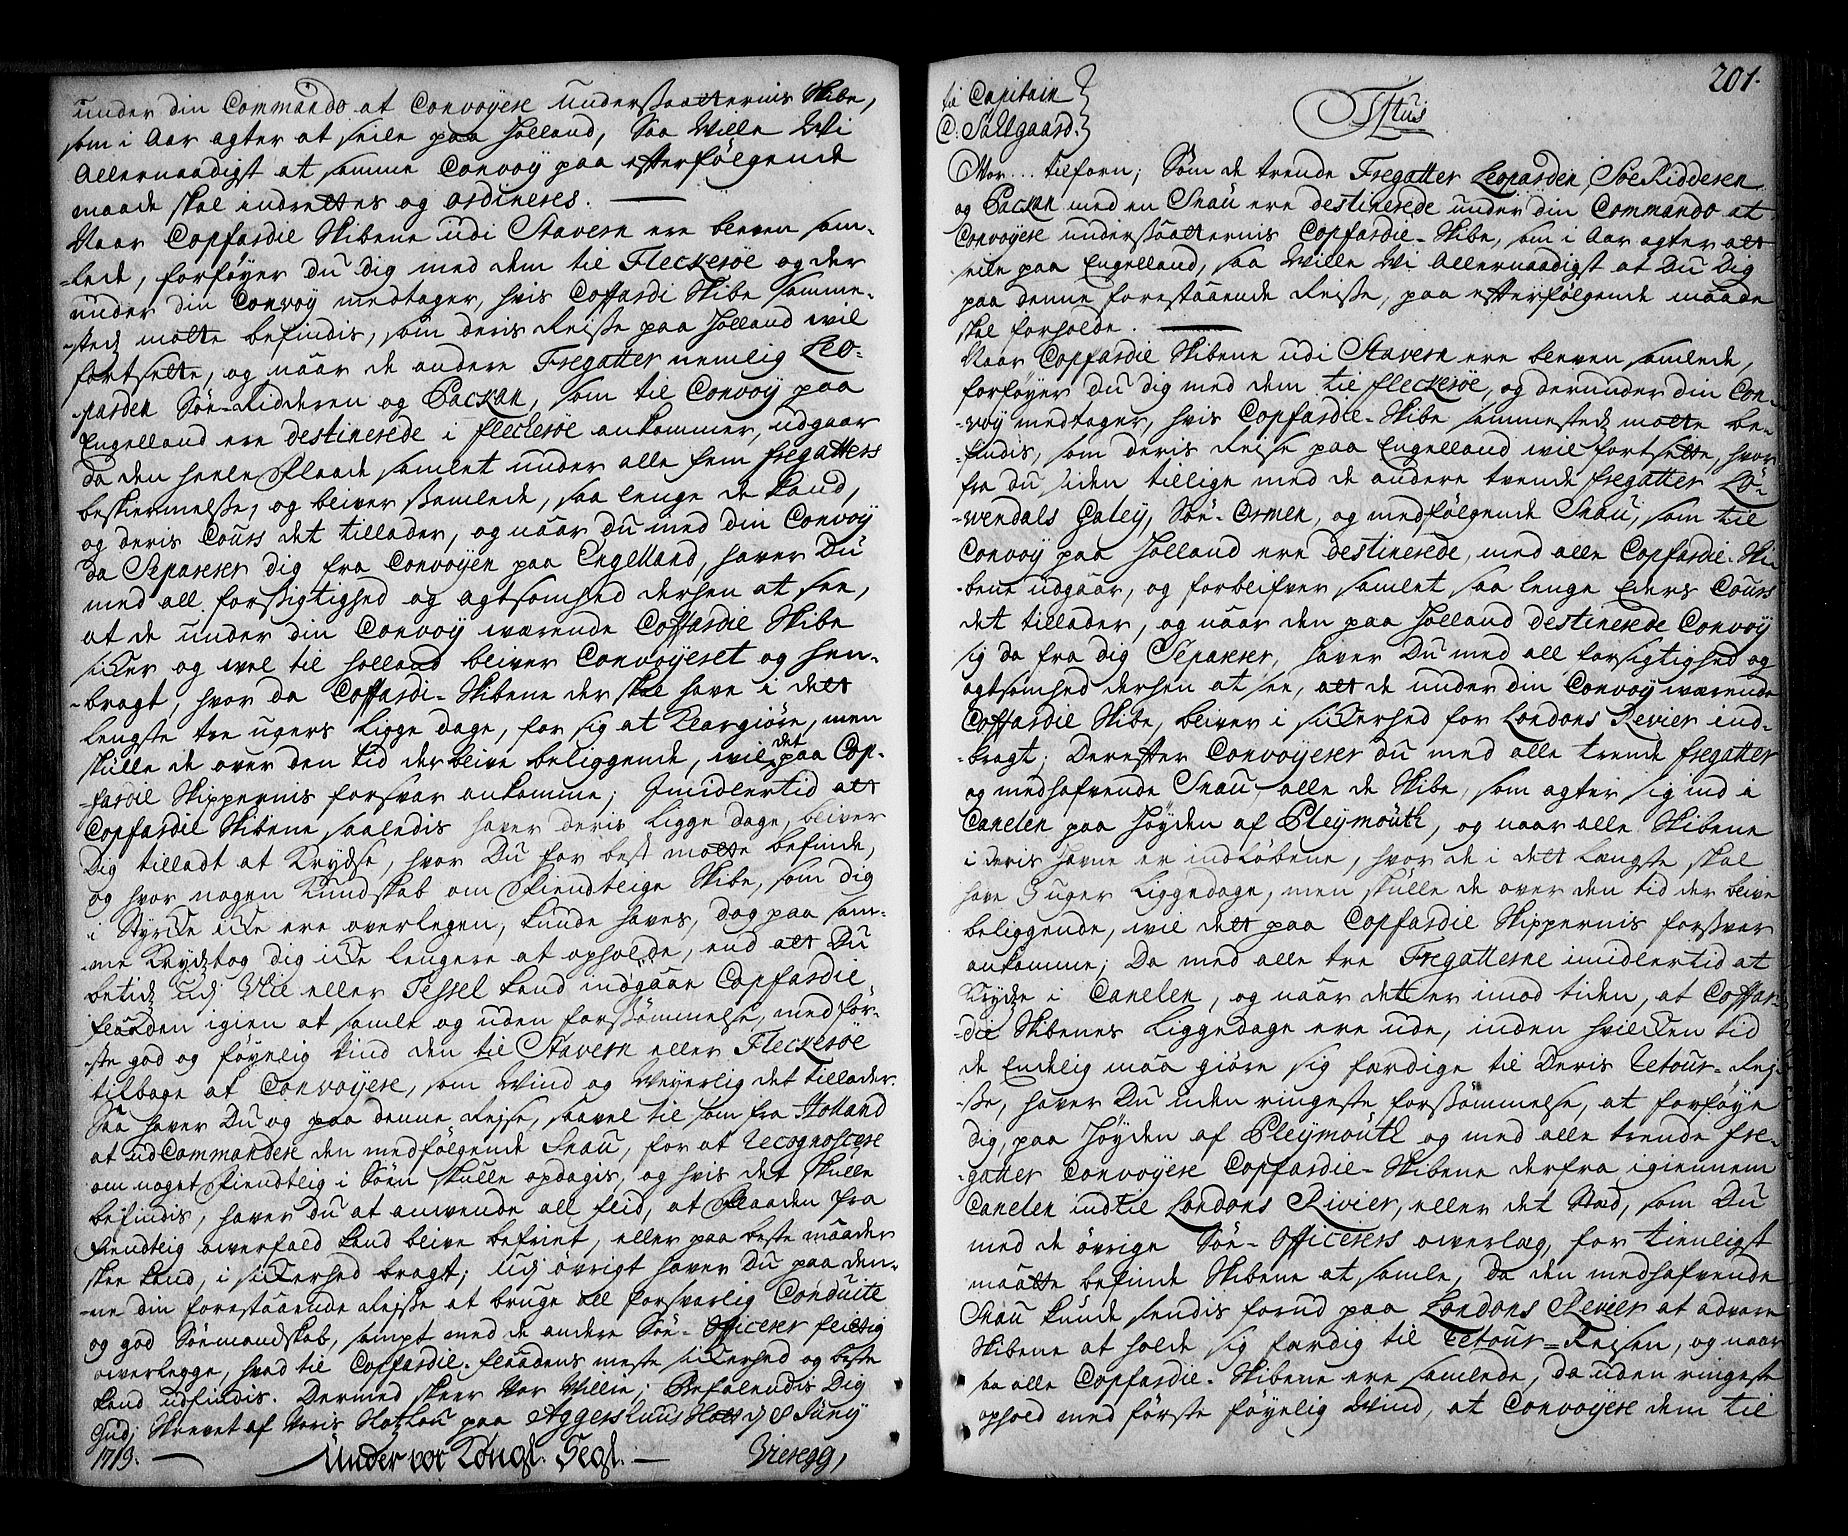 under din Commando at Convoyere undersaatternis Skibe,
som i Aar agter at seile paa Holland, Saa Wille Wi
Allernaadigst at samme Convoy paa efterfølgende
maade skal indrettes og ordineres.
Naar Copfardie Skibene udi Stavern ere bleven sam-
-lede, forføyer Du dig med dem til Fleckerøe og der
under din Convoy medtager, hvis Coffardi Skibe samme-
-stedz motte befindis, som deris Reisse paa Holland wil
fortsette, og naar de andere Fregatter nemlig Leo-
-parden Søe-Ridderen og Packan, som til Convoy paa
Engelland ere destinerede i Fleckerøe ankommer, udgaar
da den heele Flaade samlet under alle fem Fregatters
beskiermelse, og bliver ssamlede, saa lenge de kand,
og deris Cours det tillader, og naar Du med din Convoy
da Separerer dig fra Convoyen paa Engelland, haver Du
med all forssigtighed og agtsomhed derhen at see,
at de under din Convoy wærende Coffardie Skibe
sicker og wel til Holland bliver Convoyeret og hen-
-bragt, hvor da Coffardi-Skibene der skal have i dett
lengste tre ugers Ligge dage, for sig at Klargiøre, men
skulle de over den tid der blive beliggende, wil det paa Cop-
-fardie Skippernis forsvar ankomme; Imidlertid att
Copfardie Skibene saaledis haver deris Ligge dage, bliver
Dig tilladt at Krydse, hvor Du for best motte befinde,
og hvor nogen Kundskab om Fiendtlige Skibe, som dig
i Styrcke icke ere overlegen, kunde haves, dog paa sam-
-me Krydstog dig icke lengere at opholde, end att Du
betids udj Vlie eller Tessel kand indgaae Copfardie
Flaaden igien at samle og uden forssømmelse, med før-
-ste god og føyelig Vind den til Stavern eller Fleckerøe
tilbage at Convoyere, som Wind og Weyerlig det tillader.
Saa haver Du og paa denne Rejse, saavel til som fra Holland
at udCommandere den medfølgende Snau, for at Recognoscere
om noget Fiendtlig i Søen skulle opdagis, og hvis det skulle
befindis, haver Du at anvende all flid, at Flaaden fra
Fiendtlig owerfald kand blive befriet, eller paa beste maader
skee kand, i sickerhed bragt; Udj øvrigt haver Du paa den-
-ne din forestaaende Rejsse at bruge all forsvarlig Conduite
og god Søemandskab, sampt med de andere Søe-Officerer flittig
overlegge, hvad til Copfardie-flaadens meste sickerhed og beste
kand udfindis. Dermed skeer Vor Villie; Befalendis Dig
Gud; Skrevet af Voris Slotzlou paa Aggershuus Slott d 8 Juny
1719.
Under vor Kongl. Segl.
Vieregg,
201.
til Capitain
C: Sallgaard.
Titus
Vor... tilforn; Som de trende Fregatter Leoparden, Søe Ridderen
og Packan med en Snau ere destinerede under din Commando at
Convoyere underssaatternis Copfardie-Skibe, som i Aar agter att
seile paa Engelland, saa Wille Wi Allernaadigst at Du Dig
paa denne forestaaende Reisse, paa efterfølgende maade
skal forholde.
Naar Copfardie Skibene udi Stavern ere bleven samlede,
forføyer Du dig med dem til Fleckerøe, og derunder din Con-
-voy medtager, hvis Copfardie-Skibe sammestedz motte be-
-findis, som deris Rejse paa Engelland wil fortsette, hvor
fra du siden tillige med de andere tvende Fregatter Lø-
-vendals Galey, Søe-Ormen, og medfølgende Snau, som til
Convoy paa Holland ere destinerede, med alle Copfardie-Ski-
-bene udgaar, og forblifver samlet saa lenge Eders Cours
det tillader, og naar den paa Holland destinerede Convoy
sig da fra dig Separer, haver Du med all forsigtighed og
agtsomhed derhen at see, att de under din Convoy wærende
Coffardie Skibe, bliver i sickerhed for Londons Revier ind-
-bragt; Derefter Convoyerer du med alle trende Fregatter
og medhafvende Snau, alle de Skibe, som agter sig ind i
Canelen paa Høyden af Pleymouth, og naar alle Skibene
i deris Havne er indløbene, hvor de i dett Længste skal
have 3 uger Liggedage, men skulle de over den tid der blive
beliggende, wil dett paa Copfardie Skippernis forssvar
ankomme; Da med alle tre Fregatterne imidlertid at
Krydze i Canelen, og naar det er imod tiden, at Coffar-
-die Skibenes Liggedage ere ude, inden hvilcken tid
de Endelig maa giøre sig færdige til Deris Retour-Rej-
-sse, haver Du uden ringeste forssømmelse, at forføye
dig, paa Høyden af Pleymouth og med alle trende Fre-
-gatter Convoyere Copfardie-Skibene derfra igiennem
Canelen indtil Londons Rivier, eller det Stæd, som Du
med de øvrige Søe-Officerers owerlæg, for tienligst
maatte befinde Skibene at samle, Da den medhafvende
Snau kunde sendis forud paa Londons Revier at advare
Skibene at holde sig færdig til Retour-Reisen, og naar
da alle Copfardie-Skibene ere samlede, da uden ringeste
ophold med første føyelig Wind, at Convoyere dem til